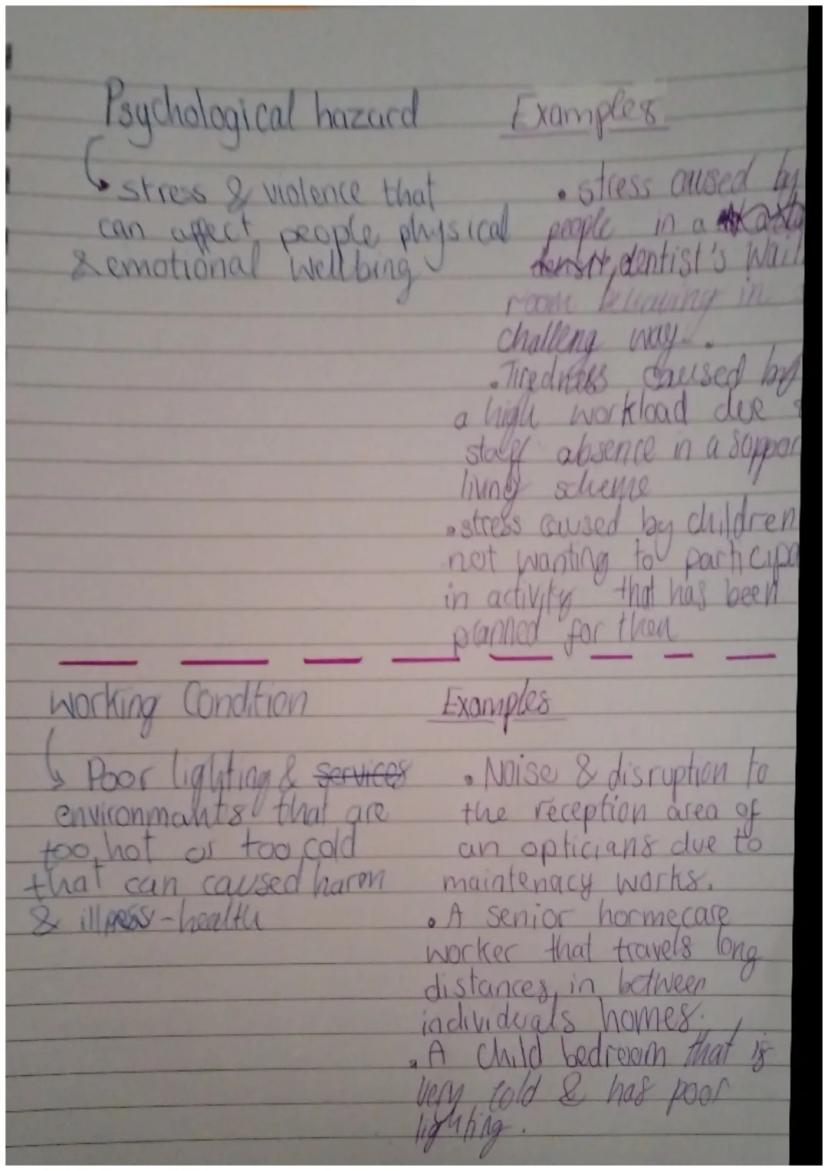 Psychological hazard
stress & violence that
can affect people physical
& emotional wellbing
Examples
• stress caused by
people in a
dentist's wait
room behaving in
challeng way.
• Tiredness caused by
a high workload due
staff absence in a suppor
living scheme
• stress caused by children
not wanting to participa
in activity that has been
planned for then
Working Condition
Poor lighting & services
environmants that are
too hot or too cold
that can caused harm
& ill-health
Examples
• Noise & disruption to
the reception area of
an opticians due to
maintenacy works.
• A senior homecare
worker that travels long
distances in between
individuals homes.
• A child bedroom that is
very cold & has poor
lighting.